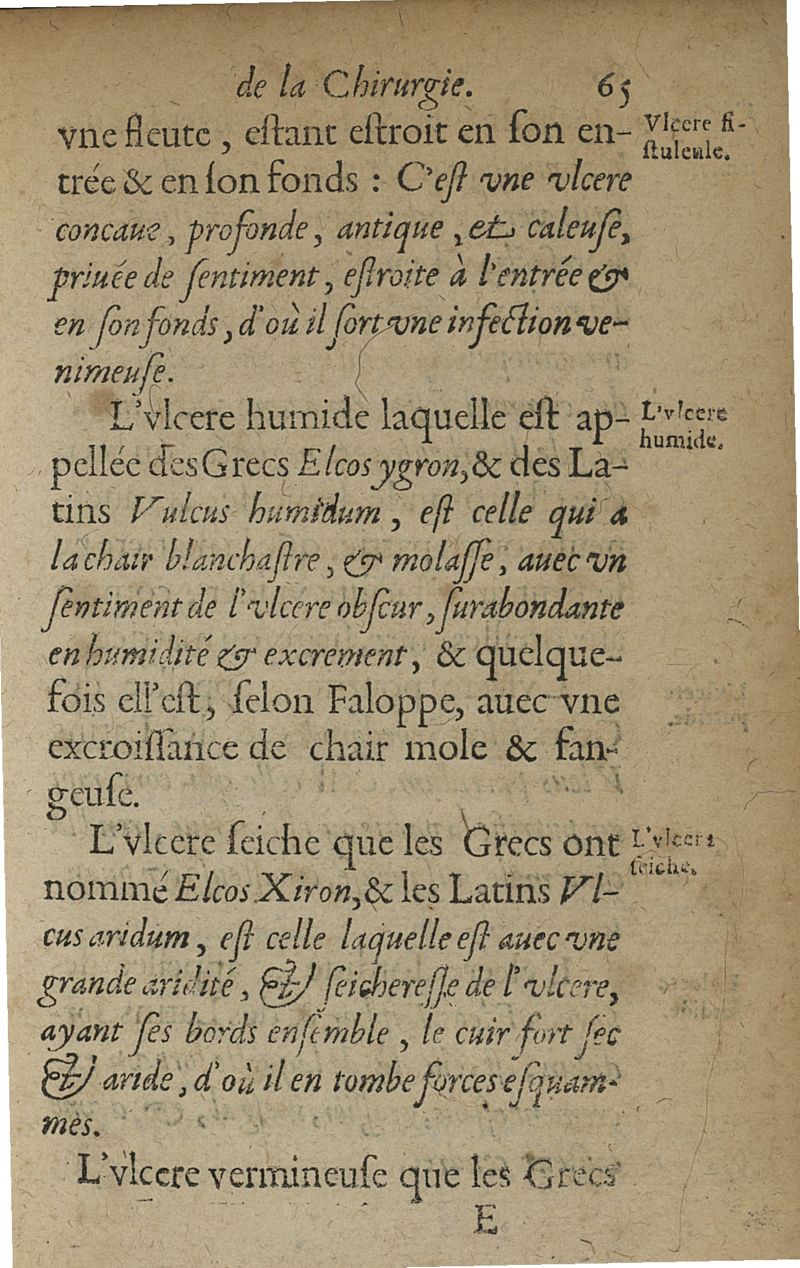 de la Chirurgie. 65
vne fleute, eſtant eſtroit en ſon en-
Vlcere fi-
ſtuleuſe.
trée & en ſon fonds : C'eſt vne vlcere
concaue, profonde, antique, et caleuſe,
priuée de ſentiment, eſtroite à l'entrée &
en ſon fonds, d'où il ſort vne infection ve-
nimeuſe.
L'vlcere humide laquelle eſt ap-
L'vlcere
humide.
pellée des Grecs Elcos ygron, & des La-
tins Vulcus humidum, eſt celle qui a
la chair blanchaſtre, & molaſſe, auec vn
ſentiment de l'vlcere obſcur, ſurabondante
en humidité & excrement, & quelque-
fois ell'eſt, ſelon Faloppe, auec vne
excroiſſance de chair mole & fan-
geuſe.
L'vlcere ſeiche que les Grecs ont
L'vlcere
ſeiche.
nommé Elcos Xiron, & les Latins Vl-
cus aridum, eſt celle laquelle eſt auec vne
grande aridité, & ſeichereſſe de l'vlcere,
ayant ſes bords enſemble, le cuir fort ſec
& aride, d'où il en tombe forces eſquam-
mes.
L'vlcere vermineuſe que les Grecs
E